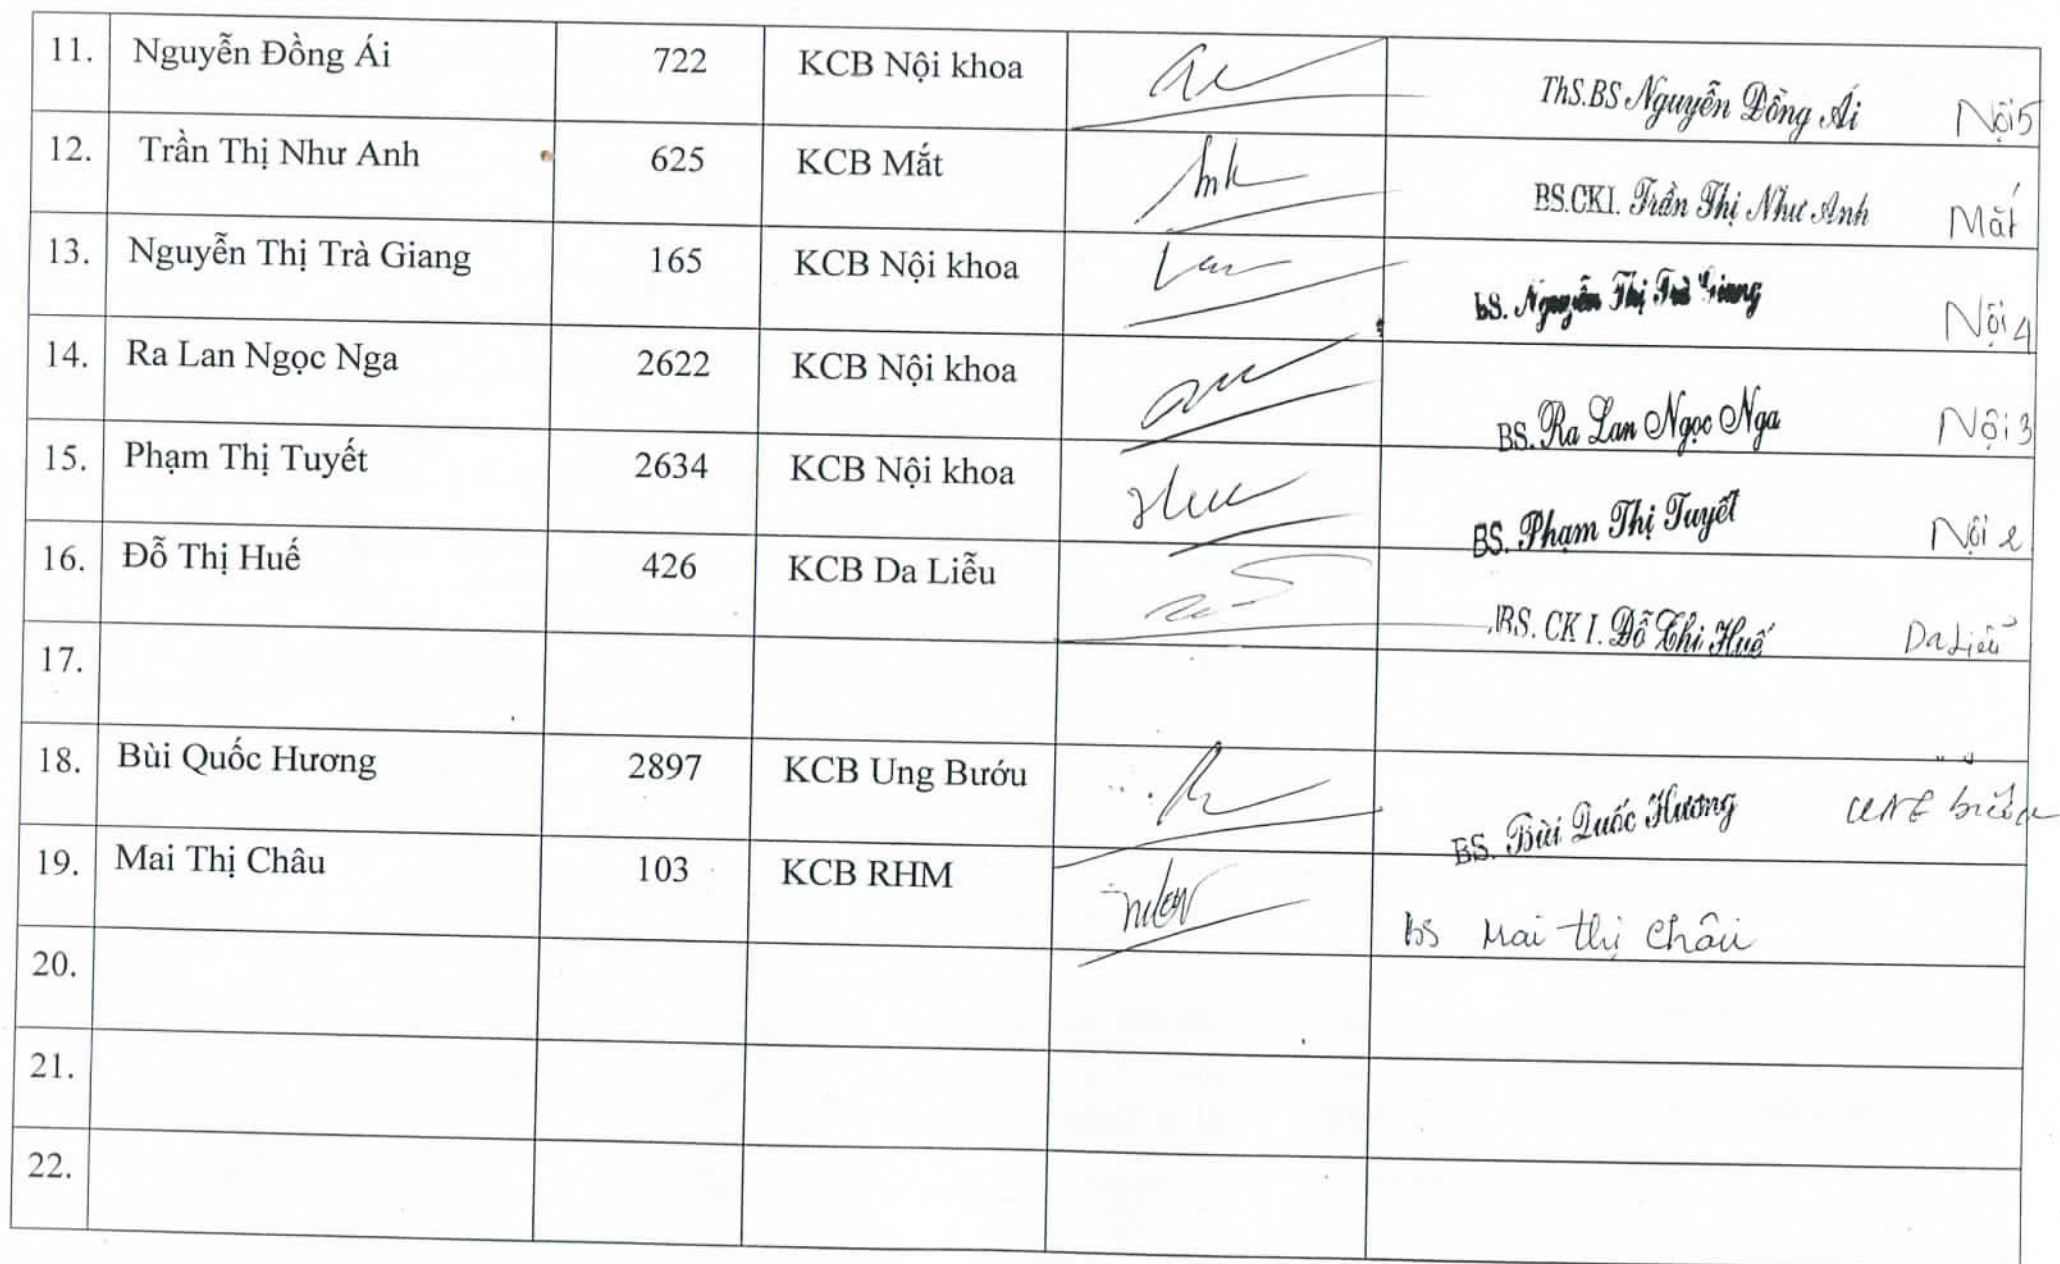 11. Nguyễn Đồng Ái 722 KCB Nội khoa ThS.BS Nguyễn Đồng Ái Nội 5
12. Trần Thị Như Anh 625 KCB Mắt BS.CKI. Trần Thị Như Anh Mắt
13. Nguyễn Thị Trà Giang 165 KCB Nội khoa bS. Nguyễn Thị Trà Giang Nội 4
14. Ra Lan Ngọc Nga 2622 KCB Nội khoa BS. Ra Lan Ngọc Nga Nội 3
15. Phạm Thị Tuyết 2634 KCB Nội khoa BS. Phạm Thị Tuyết Nội
16. Đỗ Thị Huế 426 KCB Da Liễu BS. CK I. Đỗ Thị Huế Da Liễu
17.
18. Bùi Quốc Hương 2897 KCB Ung Bướu BS. Bùi Quốc Hương
19. Mai Thị Châu 103 KCB RHM bs Mai thị Châu
20.
21.
22.